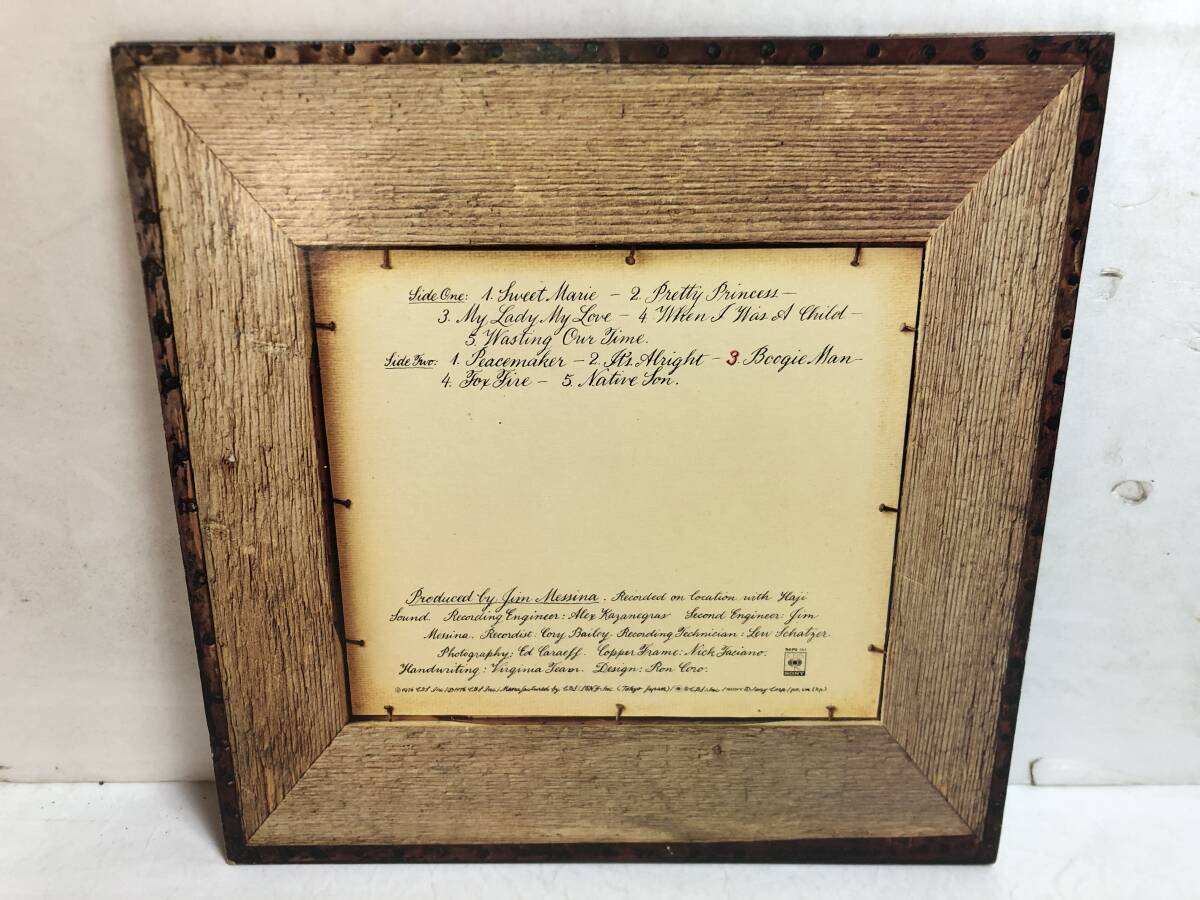 Side One: 1. Sweet Marie – 2. Pretty Princess –
3. My Lady My Love – 4. When I Was A Child –
5. Wasting Our Time.
Side Two: 1. Peacemaker – 2. It's Alright – 3. Boogie Man –
4. Fox Fire – 5. Native Son.
Produced by Jim Messina. Recorded on location with Haji
Sound. Recording Engineer: Alex Kazanegras Second Engineer: Jim
Messina. Recordist: Cory Bailey. Recording Technician: Lew Schatzer.
Photography: Ed Caraeff. Copper Frame: Nick Faciano.
Handwriting: Virginia Team. Design: Ron Coro.
SONY
© 1976 CBS Inc./ ℗ 1976 CBS Inc./ Manufactured by CBS/SONY Inc. (Tokyo Japan)/ ® CBS Inc./ Sony Corp/